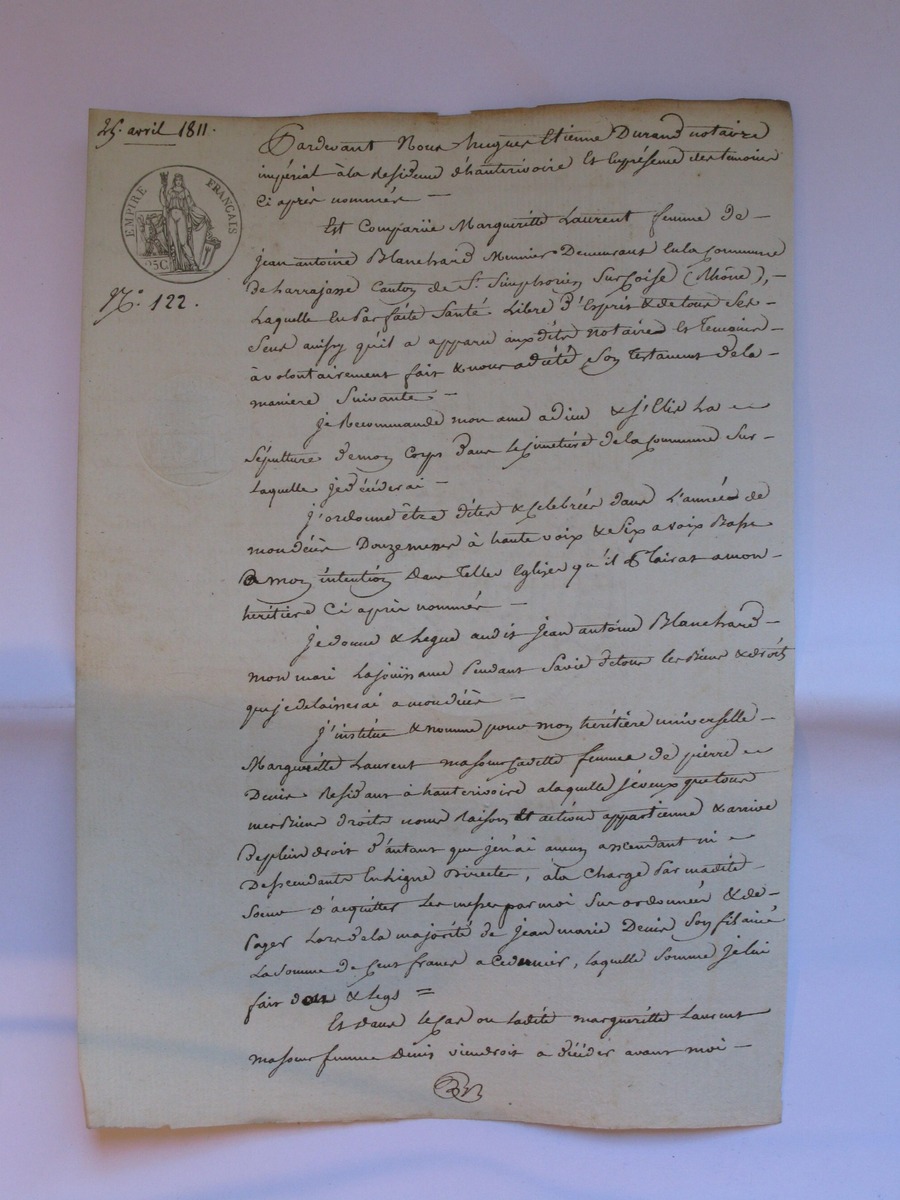 25. avril 1811.
EMPIRE FRANÇAIS
25C
N.° 122.
Pardevant Nous hugues Etienne Durand notaire
impérial à la residence d'hauterivoire Et En présence des temoins
Ci après nommés —
Est Comparüe Margueritte Laurent femme de —
jean antoine Blanchard Meunier Demeurant En la Commune
De Larrajasse Canton de St. Simphorien Sur Coise (Rhône), —
Laquelle En Parfaite Santé Libre D'Esprit & de tous Ses
Sens ainsy qu'il a apparu auxdits notaire Et Temoins —
à volontairement fait & nous a dicté Son Testament de la —
maniere Suivante —
je Recommande mon ame a dieu & j'Elis La —
Sépulture De mon Corps Dans le Cimetière de la Commune Sur —
Laquelle je décéderai —
j'ordonne être dites & Celebrées dans L'année de
mon décès Douze messes à haute voix & Six a voix Basse
a mon intention Dans telles Eglises qu'il plairat a mon —
heritière Ci après nommée —
je donne & Legue audit jean antoine Blanchard —
mon mari La joüissance Pendant Sa vie de tous les Biens & droits
que je delaisserai a mon décès —
j'institüe & nomme pour mon heritière universelle —
Margueritte Laurent ma soeur Cadette femme de pierre —
Denis Residant à hauterivoire a laquelle je veux que tous
mes Biens droits noms Raisons Et actions appartienne & arrive
De plein droit D'autant que je n'ai aucun ascendant ni —
Descendants En Ligne Directe, a la Charge Par madite —
Soeur D'acquitter Les messes par moi Sus ordonnées & de —
Payer Lors de la majorité de jean marie Denis Son fils ainé
La Somme de Cent francs a Ce dernier, laquelle Somme je lui
fais don & Legs =
Et dans le Cas ou Ladite margueritte Laurent
ma soeur femme Denis viendroit a décéder avant moi —